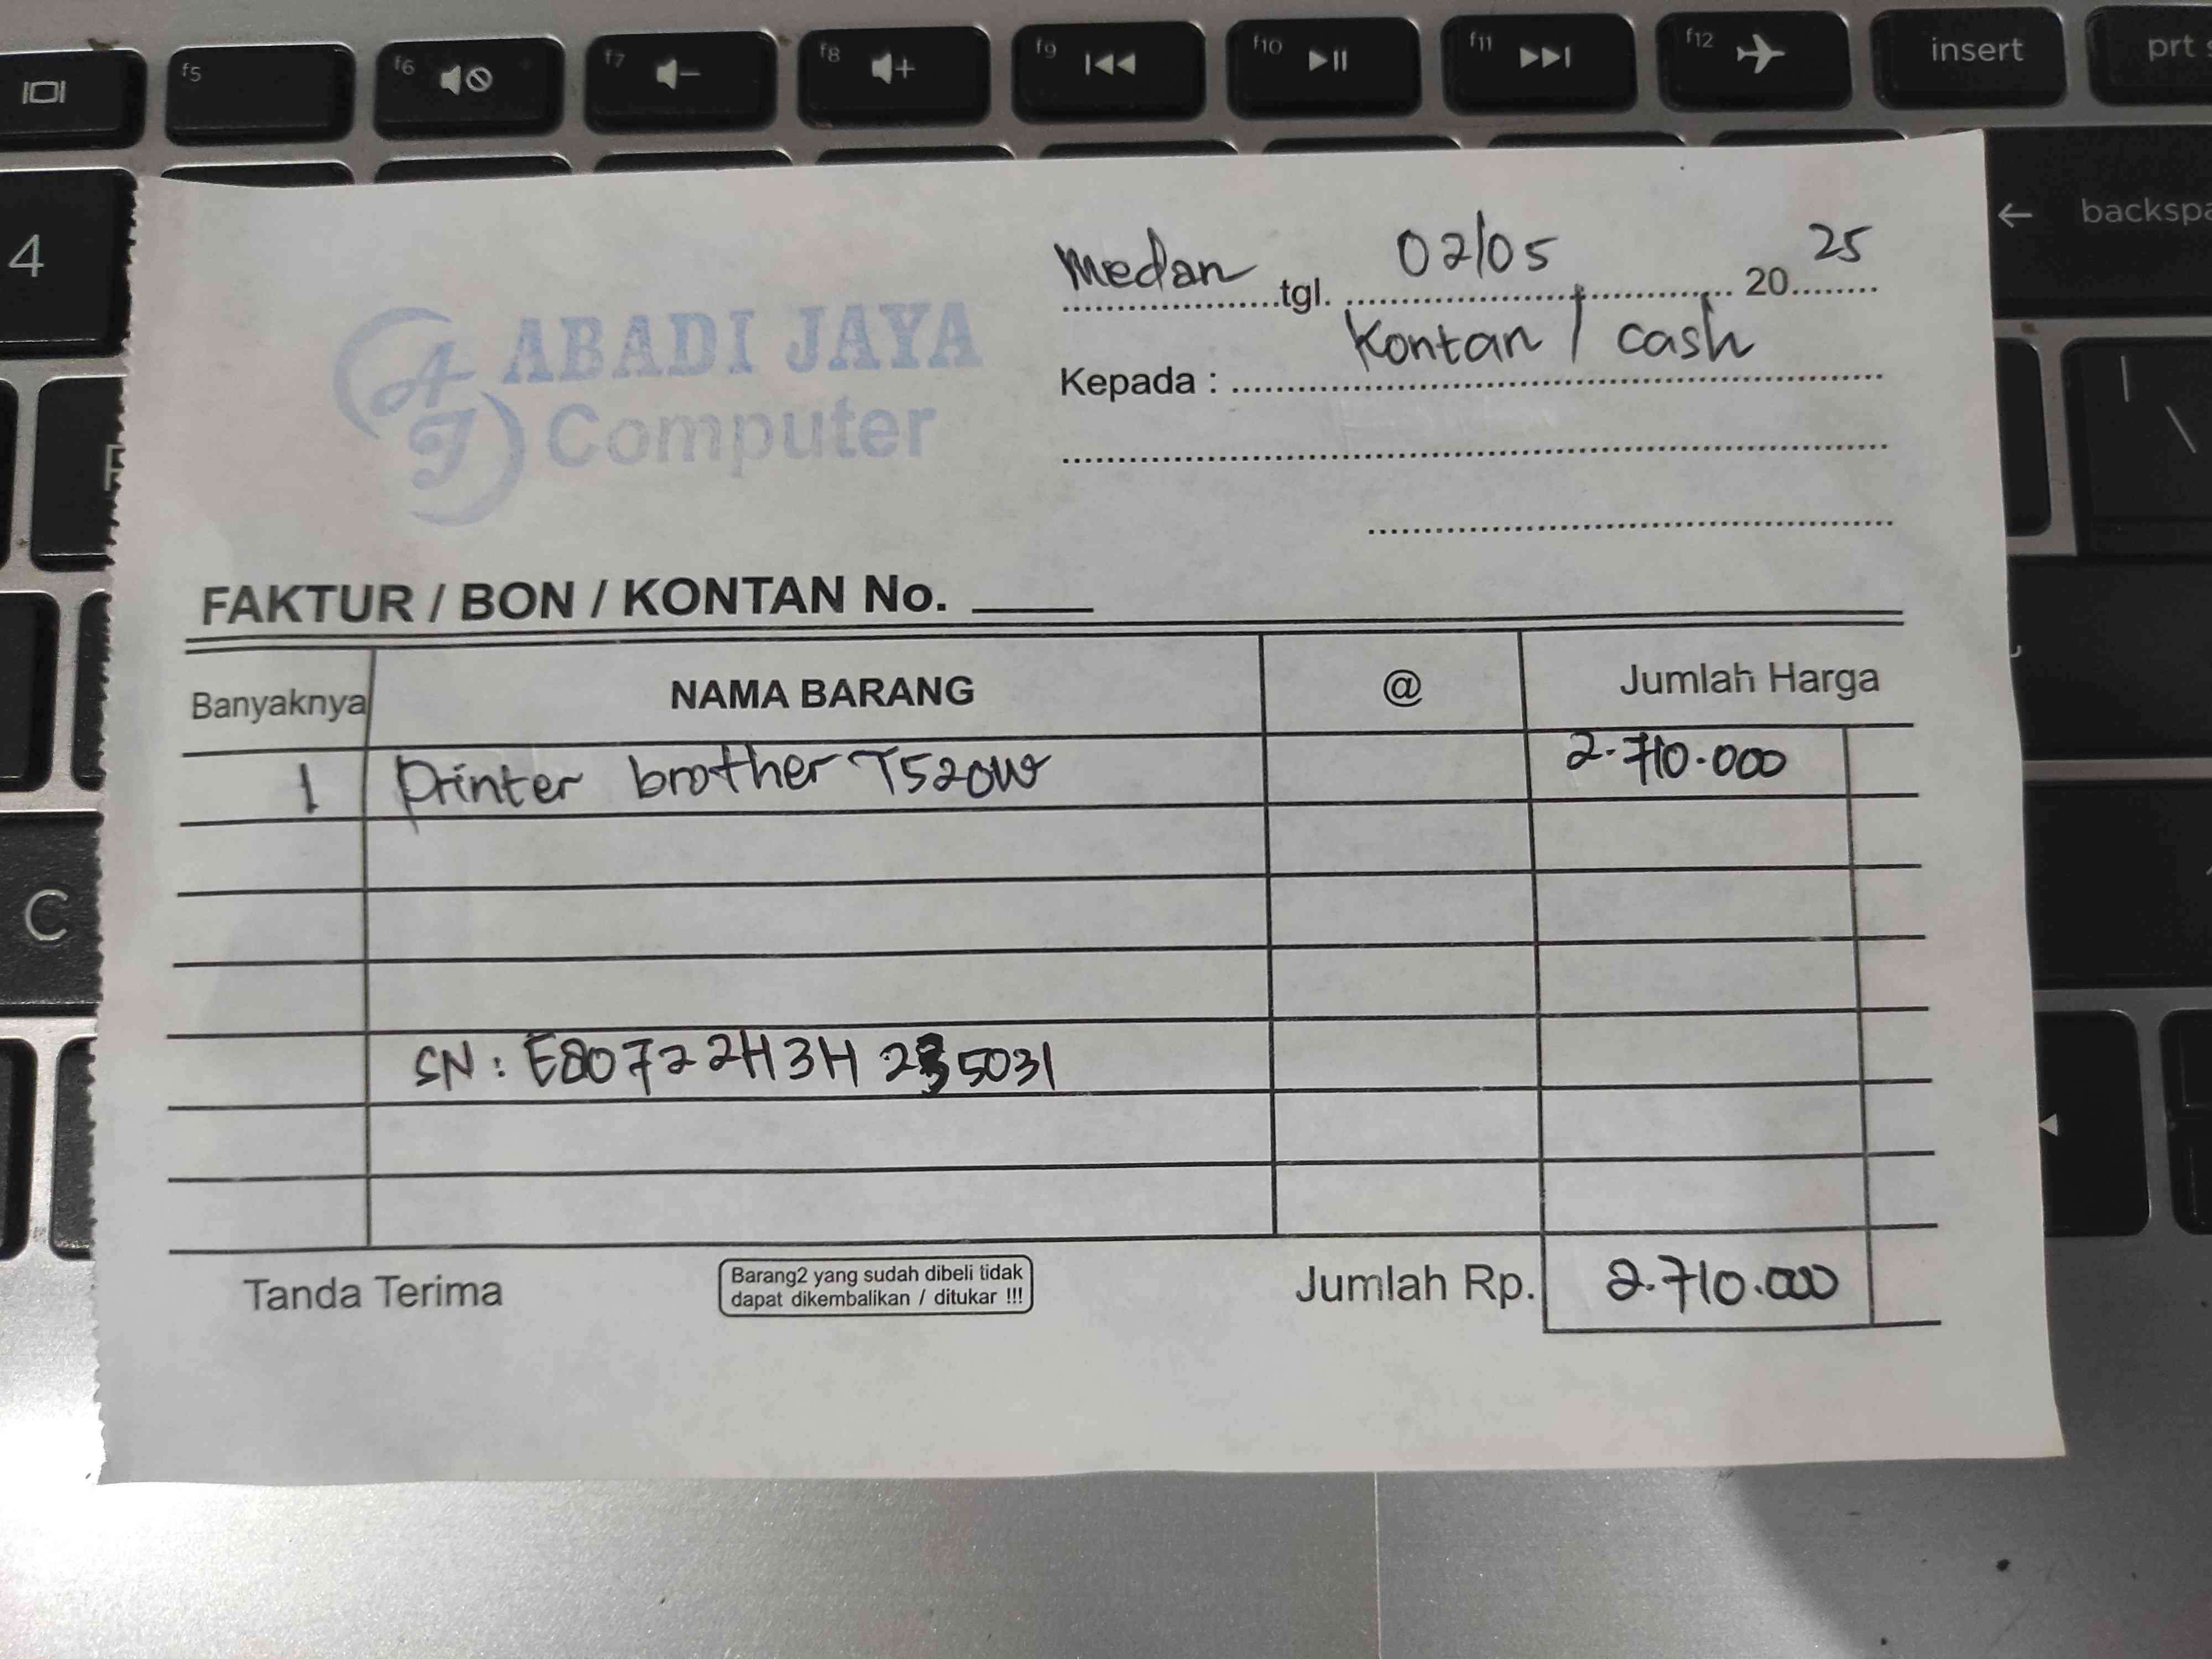 f5 f6 f7 f8 f9 f10 f11 f12 insert prt
4
backspa
C
Medan tgl. 02/05 2025
Kepada : Kontan / cash
AJ ABADI JAYA
Computer
FAKTUR / BON / KONTAN No.
Banyaknya NAMA BARANG @ Jumlah Harga
1 Printer brother T520W 2.710.000
SN: E80722H3H235031
Tanda Terima
Barang2 yang sudah dibeli tidak
dapat dikembalikan / ditukar !!!
Jumlah Rp. 2.710.000